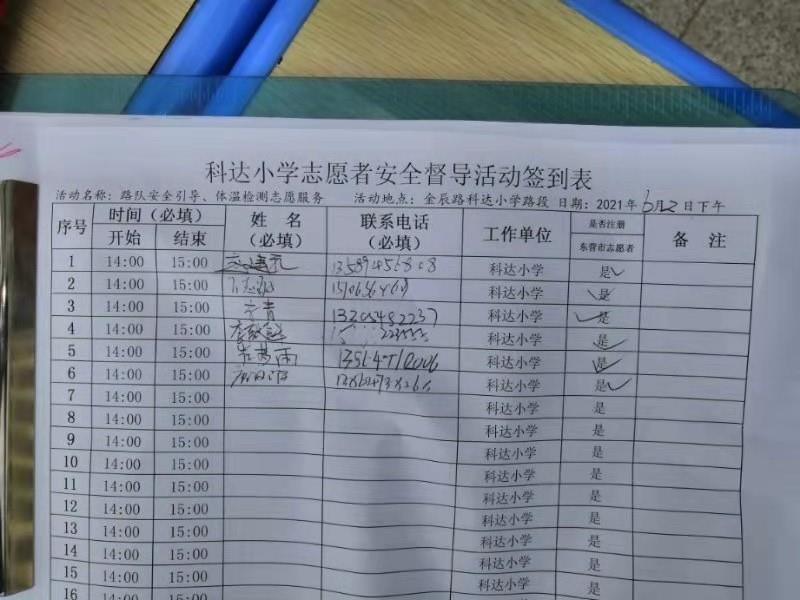 科达小学志愿者安全督导活动签到表
活动名称：路队安全引导、体温检测志愿服务 活动地点：金辰路科达小学路段 日期：2021年 月 日下午
序号 时间（必填） 姓 名（必填） 联系电话（必填） 工作单位 是否注册东营市志愿者 备 注
开始 结束
1 14:00 15:00 科达小学 是✓
2 14:00 15:00 科达小学 是
3 14:00 15:00 科达小学 是
4 14:00 15:00 科达小学 是
5 14:00 15:00 科达小学 是
6 14:00 15:00 科达小学 是✓
7 14:00 15:00 科达小学 是
8 14:00 15:00 科达小学 是
9 14:00 15:00 科达小学 是
10 14:00 15:00 科达小学 是
11 14:00 15:00 科达小学 是
12 14:00 15:00 科达小学 是
13 14:00 15:00 科达小学 是
14 14:00 15:00 科达小学 是
15 14:00 15:00 科达小学 是
16 14:00 15:00